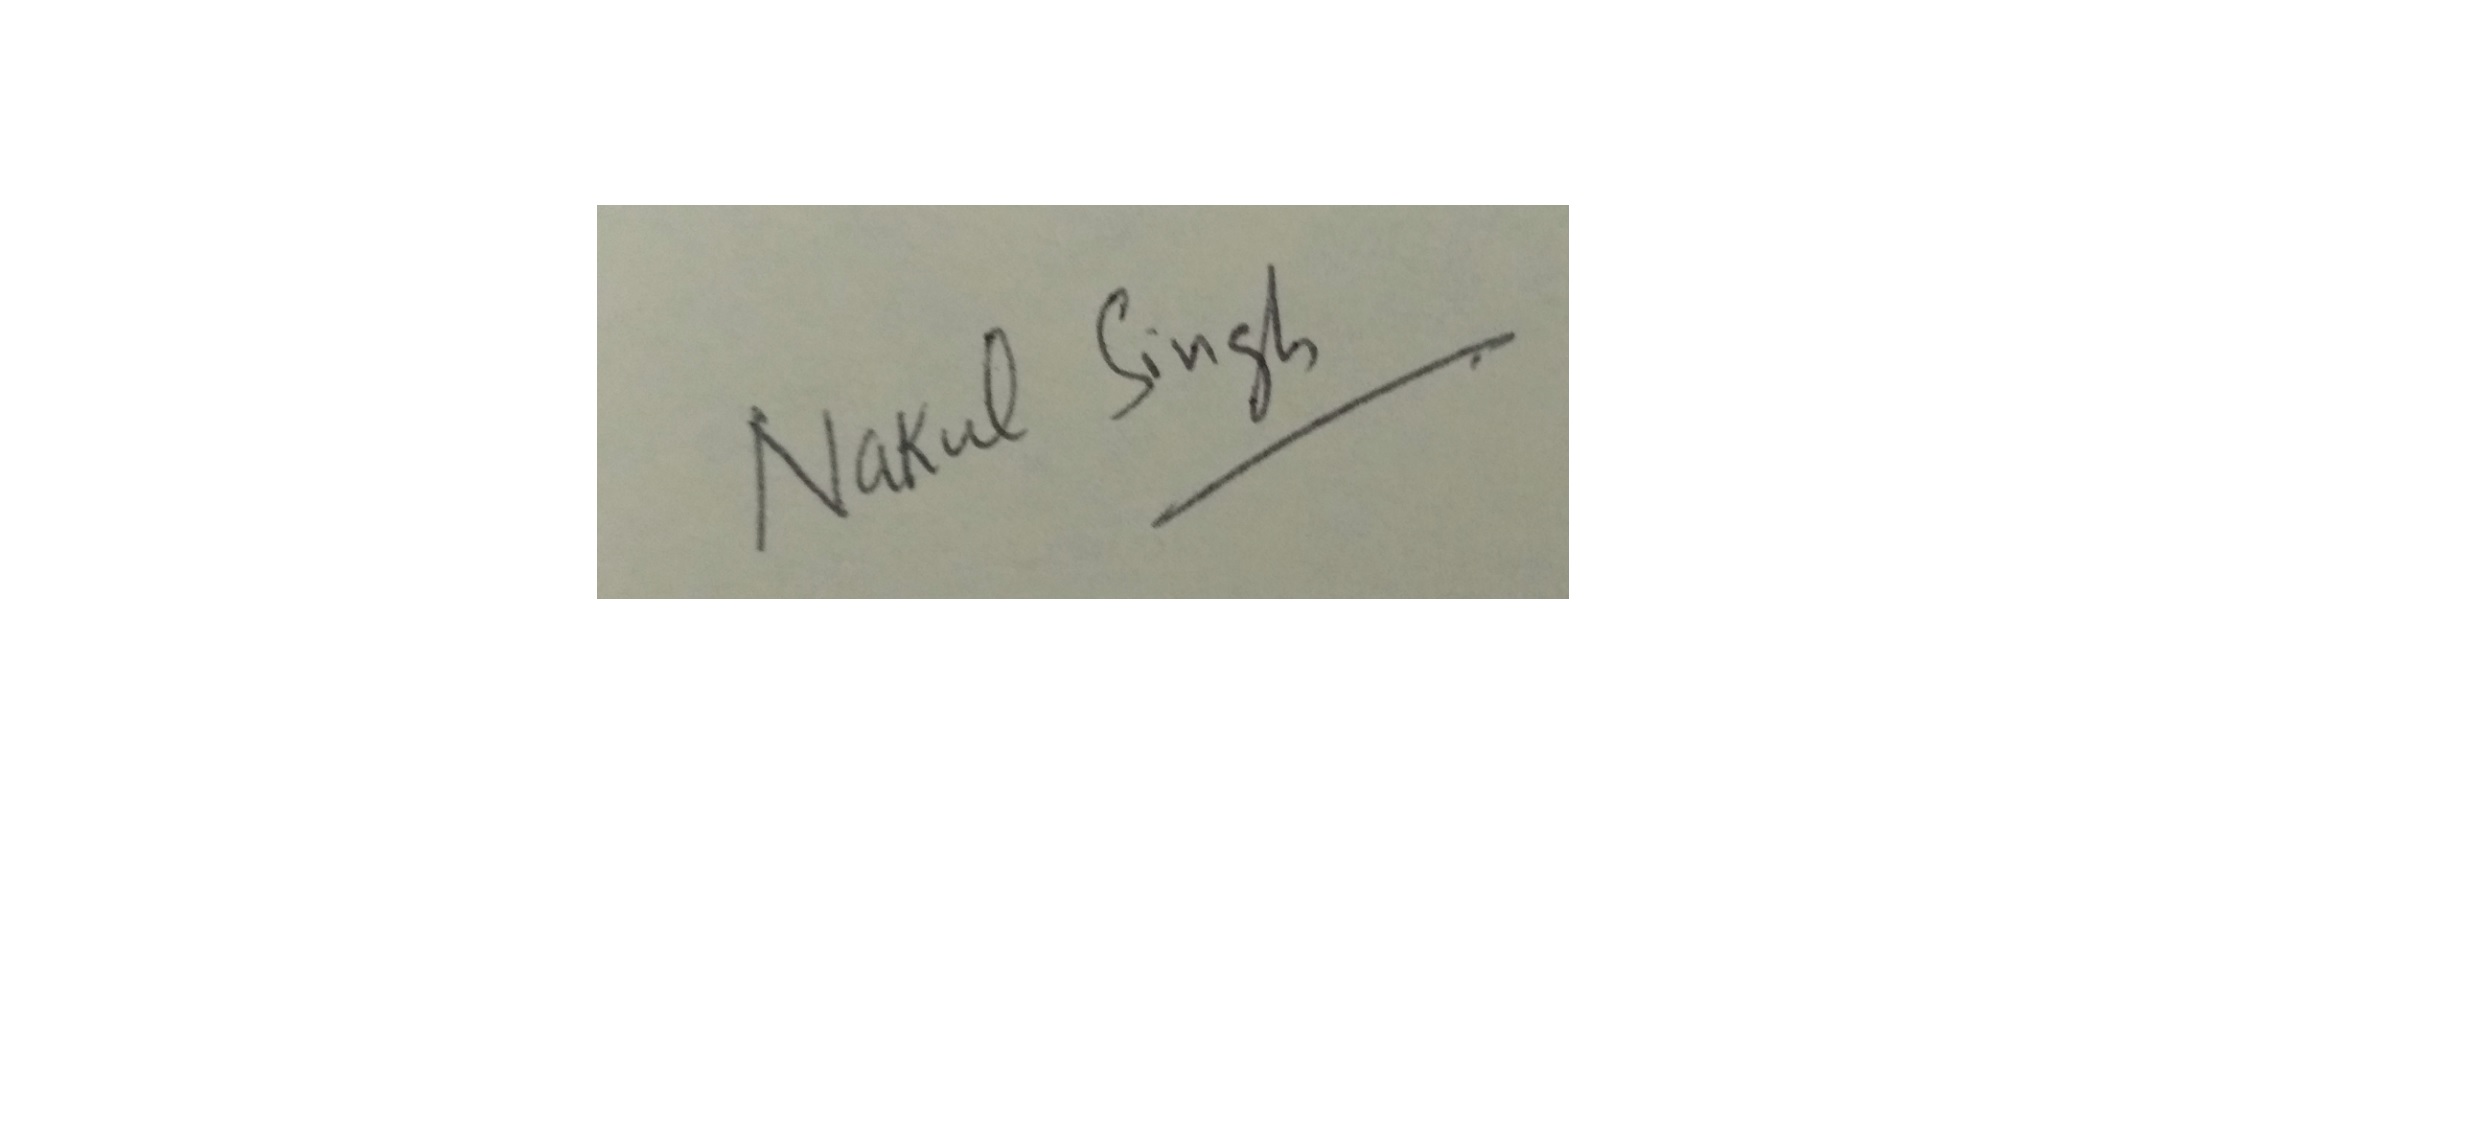 Nakul Singh